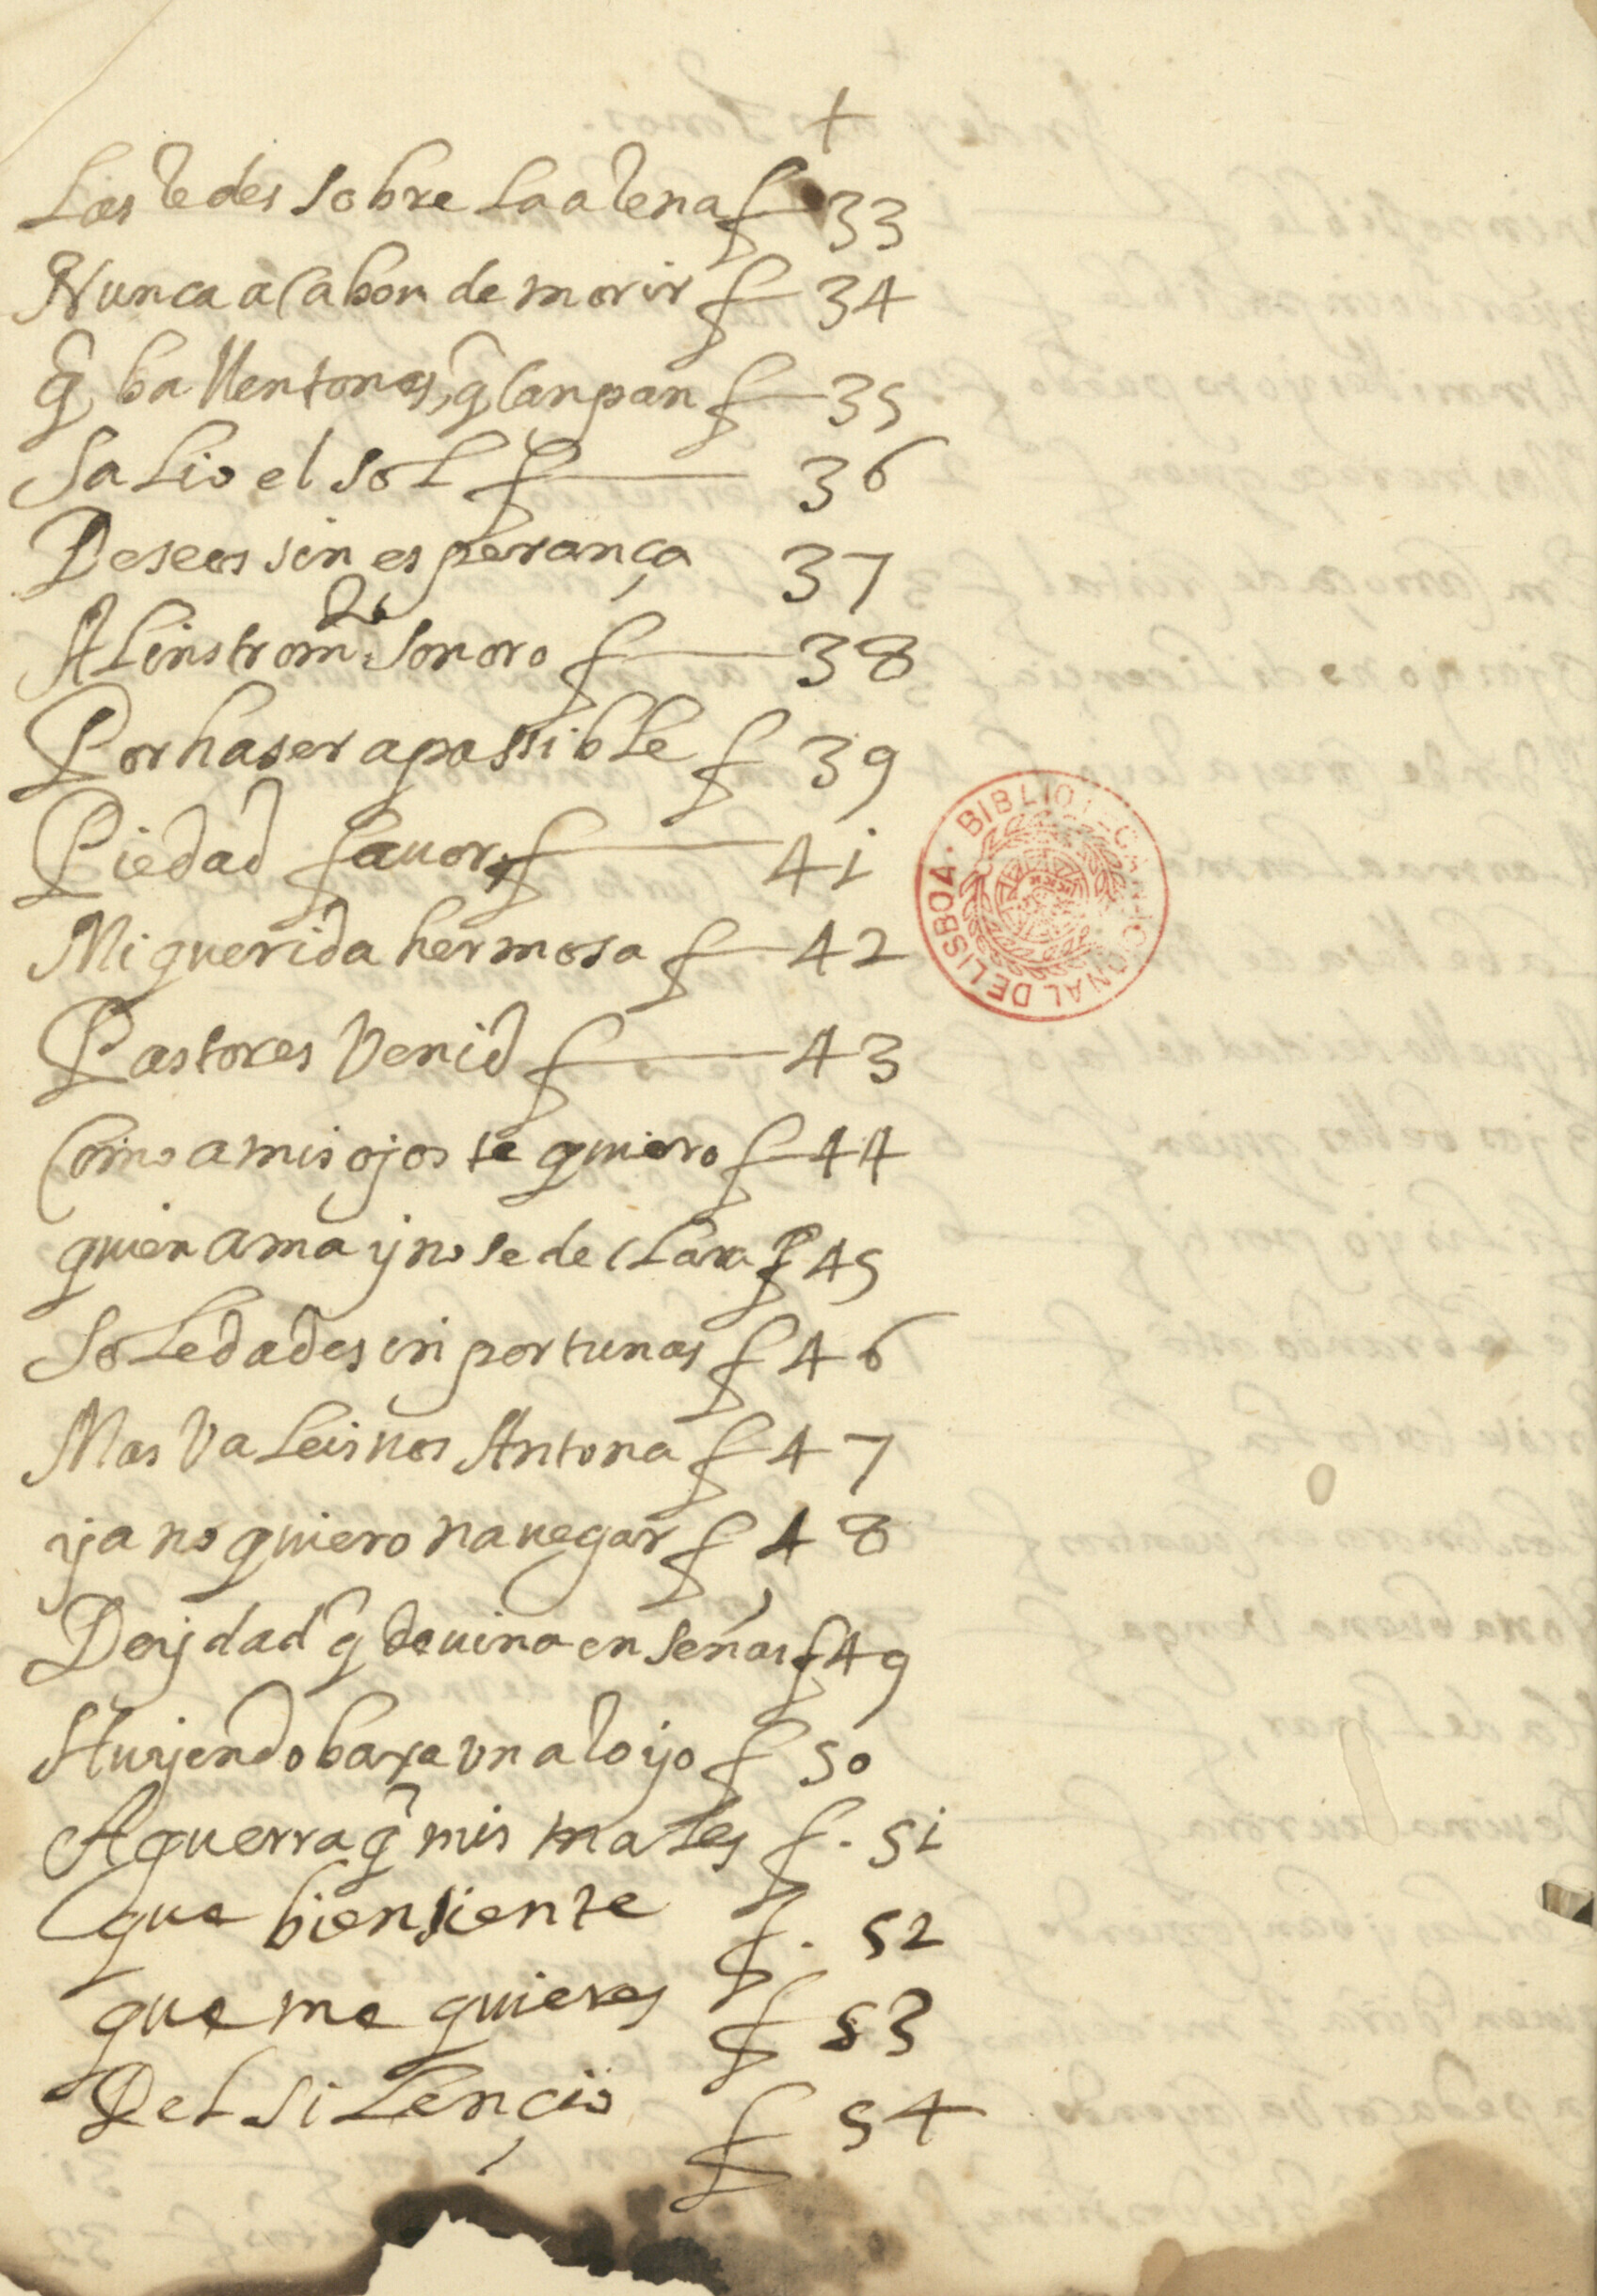 +
Las redes sobre la arena f 33
Nunca acabor de morir f 34
q̃ ballentones, q̃ campan f 35
Salio el sol f 36
Deseos sin esperança 37
Al instrom.to sonoro f 38
Por haser apassible f 39
Piedad fauor f 41
Mi querida hermosa f 42
Pastores Venid f 43
Como a mis ojos te quiero f 44
quien ama y no se declara f 45
Soledades inportunas f 46
Mas Valeis uos Antona f 47
ya no quiero nauegar f 48
Deydad q̃ deuina enseñas f 49
Huyendo baxa un aroyo f 50
A guerra q̃ mis males f. 51
que bien siente f. 52
que me quieres f 53
Del silençio f 54
BIBLIOTECA NACIONAL DE LISBOA